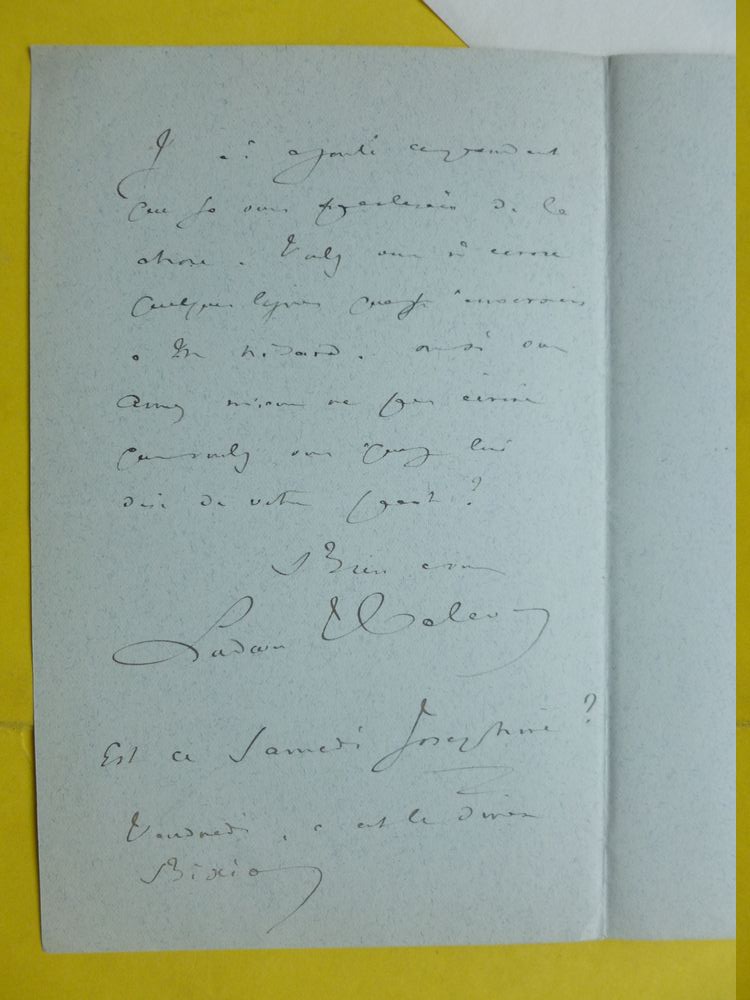 J'ai ajouté cependant
que je vous parlerais de la
chose. Voulez vous m'écrire
quelques lignes que j'enverrais
à M. Nisard. ou si vous
aimez mieux ne pas écrire
que voulez vous que je lui
dise de votre part ?
Bien à vous
Ludovic Halévy
Est ce Samedi Joséphine ?
Vendredi, c'est le diner
Bixio